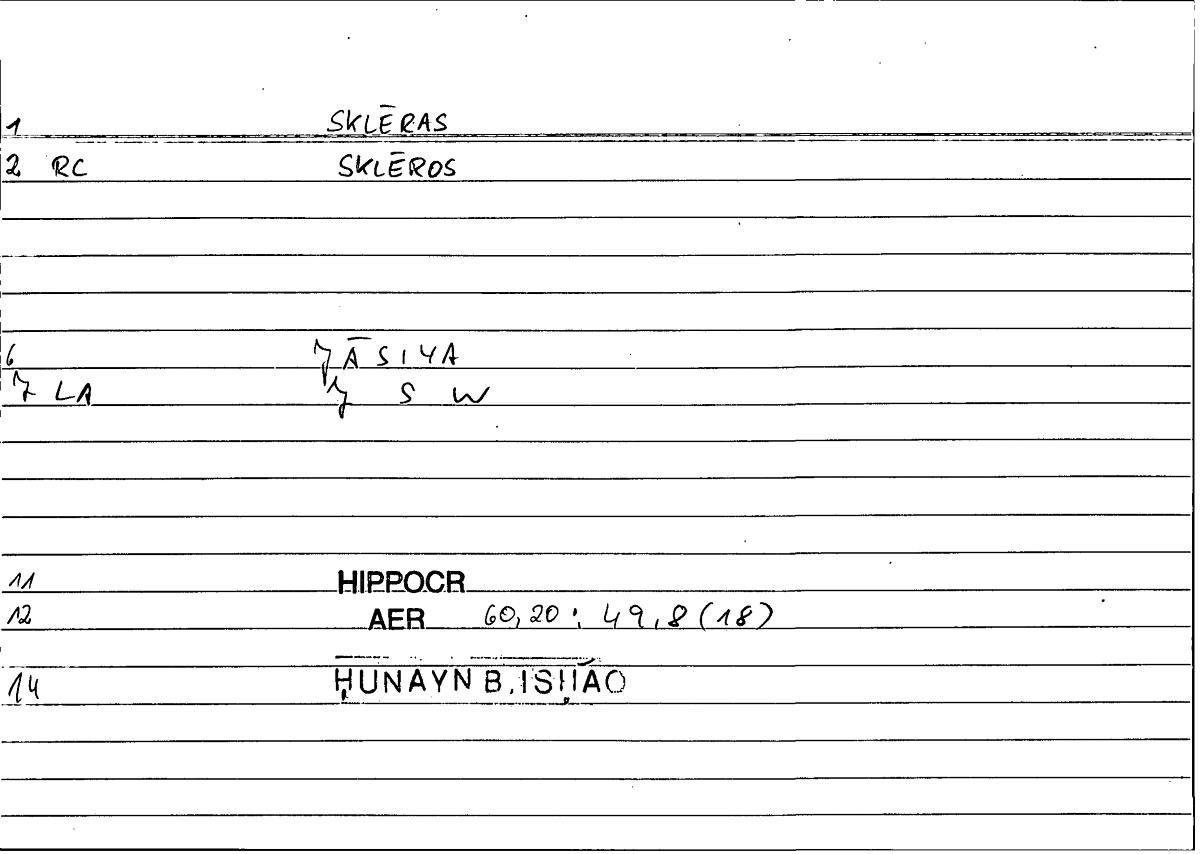 1 SKLĒRAS
2 RC SKLĒROS
6 JĀSIYA
7 LA J S W
11 HIPPOCR
12 AER 60,20 : 49,8 (18)
14 ḤUNAYN B. ISḤĀQ